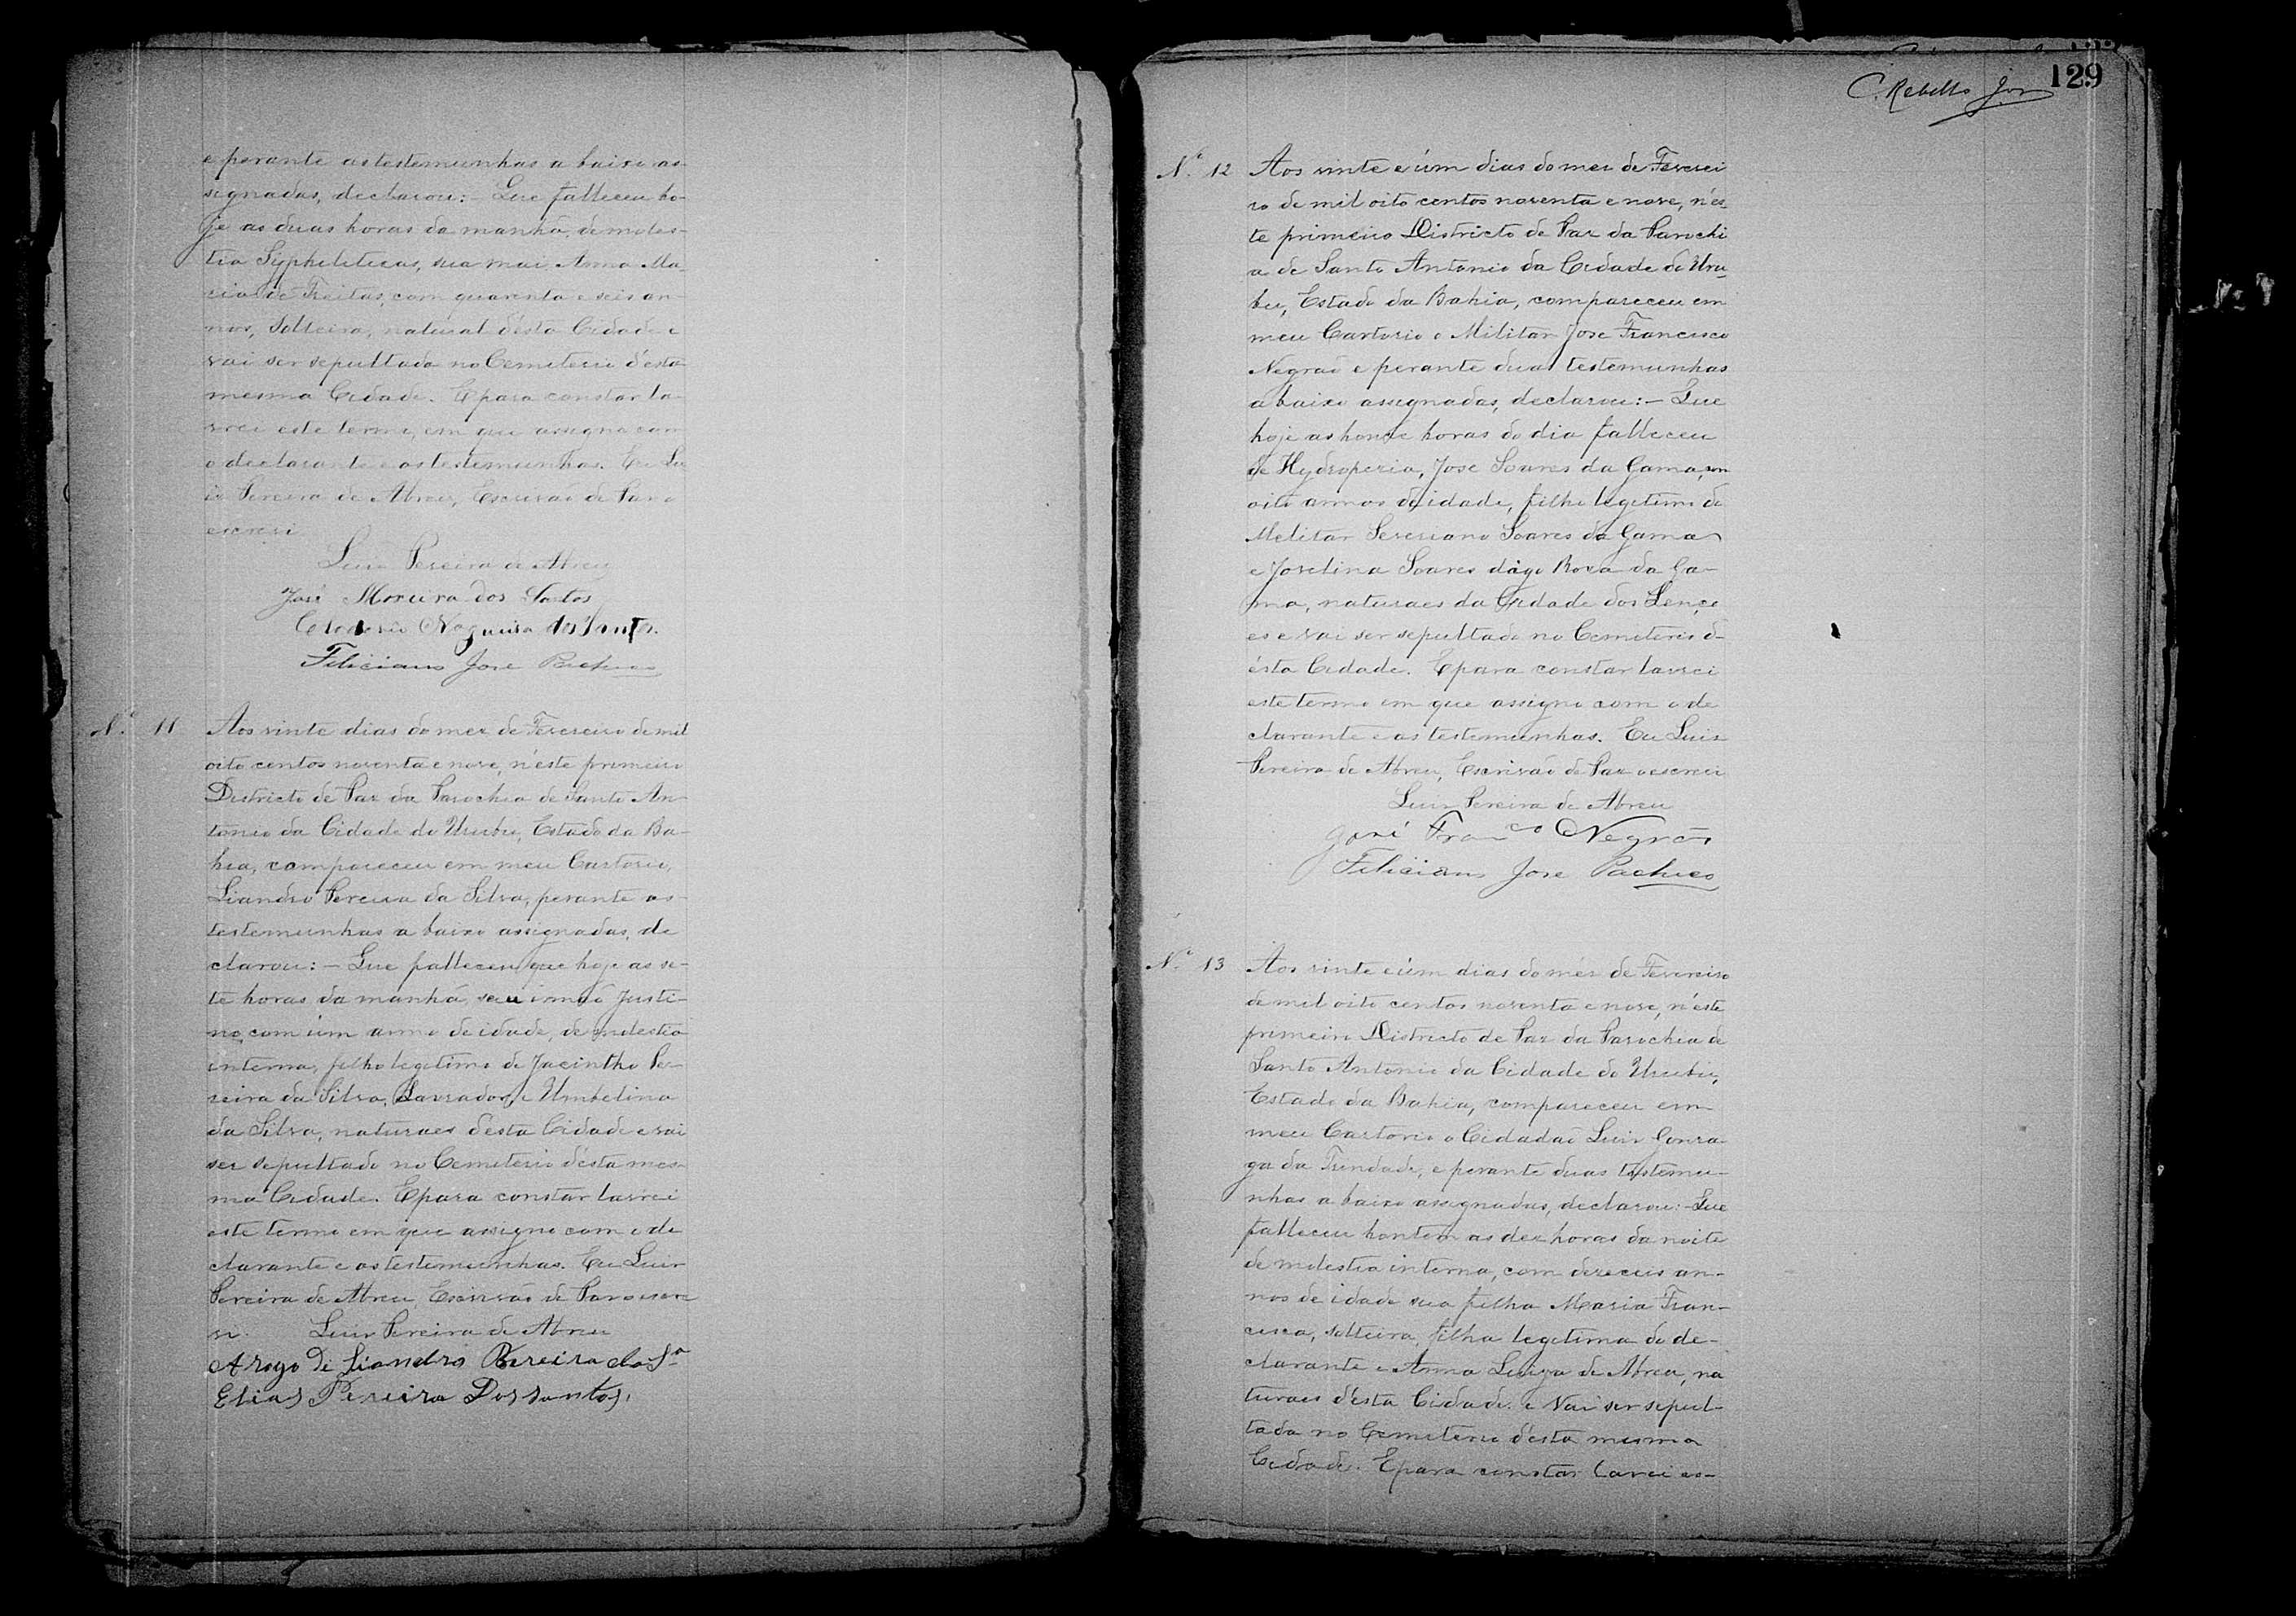 e perante as testemunhas a baixo as-
signadas, declarou: - Que falleceu ho-
je as duas horas da manhã, de moles-
tia Syphiliticas, sua mai Anna Ma-
ria de Freitas, com quarenta e seis an-
nos, solteira, natural d'ésta Cidade e
vai ser sepultada no Cemiterio d'ésta
mesma Cidade. E para constar la-
vrei este termo, em que assigno com
o declarante e as testemunhas. Eu Lu
is Pereira de Abreu, Escrivão de Paz o
escrevi
Luis Pereira de Abreu
José Moreira dos Santos
Nogueira dos Santos.
Feliciano Jose Pacheco
Nº 11 Aos vinte dias do mez de Fevereiro de mil
oito centos noventa e nove, n'éste primeiro
Districto de Paz da Parochia de Santo An-
tonio da Cidade do Urubú, Estado da Ba-
hia, compareceu em meu Cartorio,
Liandro Pereira da Silva, perante as
testemunhas a baixo assignadas, de
clarou: - Que falleceu que hoje as se-
te horas da manhã, seu irmaõ Justi-
no, com úm anno de idade, de molestia
interna, filho legitimo de Jacintho Pe-
reira da Silva, Lavrador, e Umbelina
da Silva, naturaes desta Cidade e vai
ser sepultado no Cemiterio d'ésta mes-
ma Cidade. E para constar lavrei
este termo em que assigno com o de
clarante e as testemunhas. Eu Luis
Pereira de Abreu, Escrivão de Paz o escre
vi. Luis Pereira de Abreu
Arogo de Liandro Pereira da Sª
Elias Pereira Dos santos.
129
C. Rebello Jor
Nº 12 Aos vinte e úm dias do mez de Feverei
ro de mil oito centos noventa e nove, n'és
te primeiro Districto de Paz da Parochi
a de Santo Antonio da Cidade do Uru
bu, Estado da Bahia, compareceu em
meu Cartorio o Militar Jose Francisco
Negraõ e perante duas testemunhas
a baixo assignadas, declarou: - Que
hoje as honze horas do dia falleceu
de Hydropezia, Jose Soares da Gama, com
oito annos de idade, filho legitimo do
Melitar Severiano Soares da Gama
e Joselina Soares digo Roza da Ga-
ma, naturaes da Cidade dos Lenço
es e vai ser sepultado no Cemiterio d-
ésta Cidade. E para constar lavrei
este termo em que assigno com o de
clarante e as testemunhas. Eu Luis
Pereira de Abreu, Escrivão de Paz o escrevi
Luis Pereira de Abreu
José Franco Negrão
Feliciano Jose Pacheco
Nº 13 Aos vinte e úm dias do méz de Fevereiro
de mil oito centos noventa e nove, n'éste
primeiro Districto de Paz da Parochia de
Santo Antonio da Cidade do Urubú,
Estado da Bahia, compareceu em
meu Cartorio o Cidadaõ Luis Gonza
ga da Trindade, e perante duas testemu-
nhas a baixo assignadas, declarou: - Que
falleceu hontem as dez horas da noite
de molestia interna, com dezeceis an-
nos de idade sua filha Maria Fran-
cisca, solteira, filha legitima do de-
clarante e Anna Luiza de Abreu, na
turaes d'ésta Cidade e vai ser sepul-
tada no Cemiterio d'ésta mesma
Cidade. E para constar lavrei es-